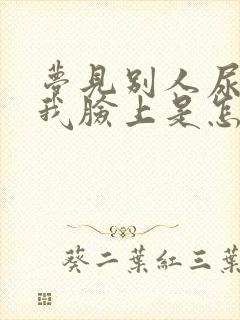 夢見別人尿
我臉上是怎
葵二葉紅三葉